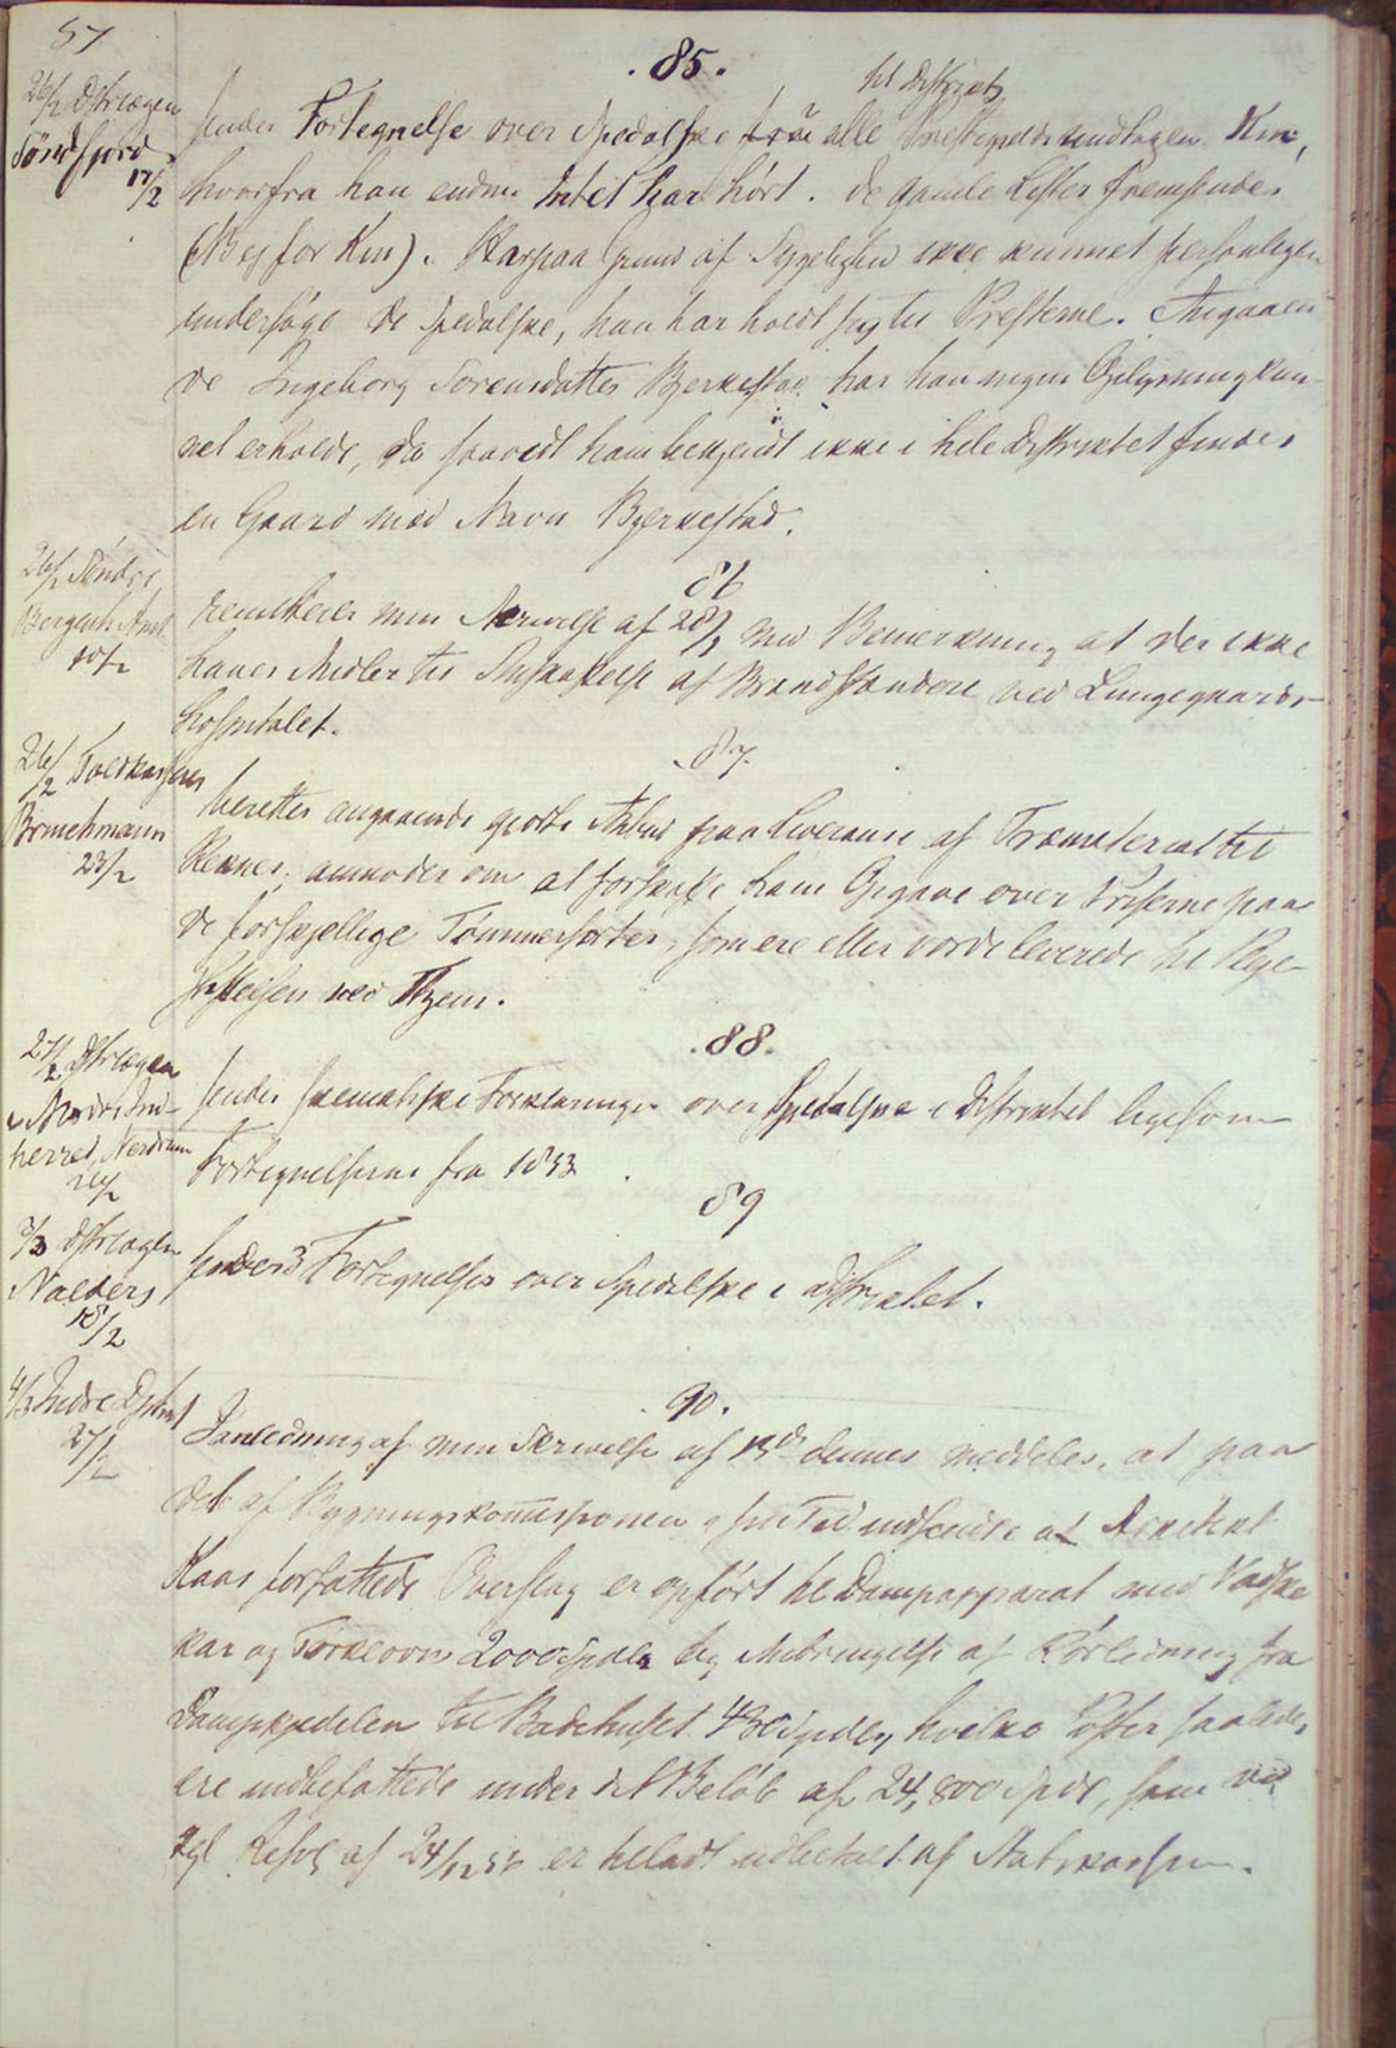 57
.85.
26/2 Dstrlægen
Søndfjord
17/2
til Distriktets
sender Fortegnelse over Spedalske fra alle Præstegjelde undtagen Kin,
hvorfra han endnu Intet har hört. De gamle Lister fremsendes
(Beg for Kin). Har paa Grund af Sygelighed ikke kunnet personligen
undersöge de Spedalske, han har holdt sig til Præsterne. Angaaen-
de Ingeborg Sorensdatter Bjerkestad har han ingen Oplysning kun-
net erholde, da saavidt ham bekjendt ikke i hele Distriktet findes
en Gaard med Navn Bjerkestad.
86
26/2 Söndre
Bergenh Amt
20/2
remitterer min Skrivelse af 28/1 med Bemerkning at der ikke
haves Midler til Anskaffelse af Brandspandene ved Lungegaards-
hospitalet.
.87.
26/2 Toldkasserer
Bruchmann
23/2
beretter angaaende gjorte Anbud paa Leverance af Træmaterial til
Reknes; anmoder om at forskaffe ham Opgave over Priserne paa
de forskjellige Tömmersorter, som ere eller vorde leverede til Pleje-
stiftelsen ved Thjem.
.88.
27/2 Dstrlægen
i Nordre Ind-
herred,
24/2
sender skematiske Forklaringer over Spedalske i Distriktet ligesom
Fortegnelserne fra 1853
89
3/3 Dstrlægen
Valders
18/2
sender 3 Fortegnelser over Spedalske i Distriktet.
90.
4/3 Indre Dpmt
27/2
I anledning af min Skrivelse af 13de dennes meddeles, at paa
det af Bygningskommissionen i sin Tid indsendte af Arkitekt
Kaas forfattede Overslag er opfört til Dampapparat med Vadske
kar og Törkeovn 2000 Spdlr og Anbringelse af Rörledning fra
Dampkjedelen til Badehuset 430 Spdlr, hvilke Poster saaledes
ere indbefattede under det Belöb af 24,800 Spdl, som ved
kgl Resol af 24/12 56 er tilladt udbetalt af Statskassen.